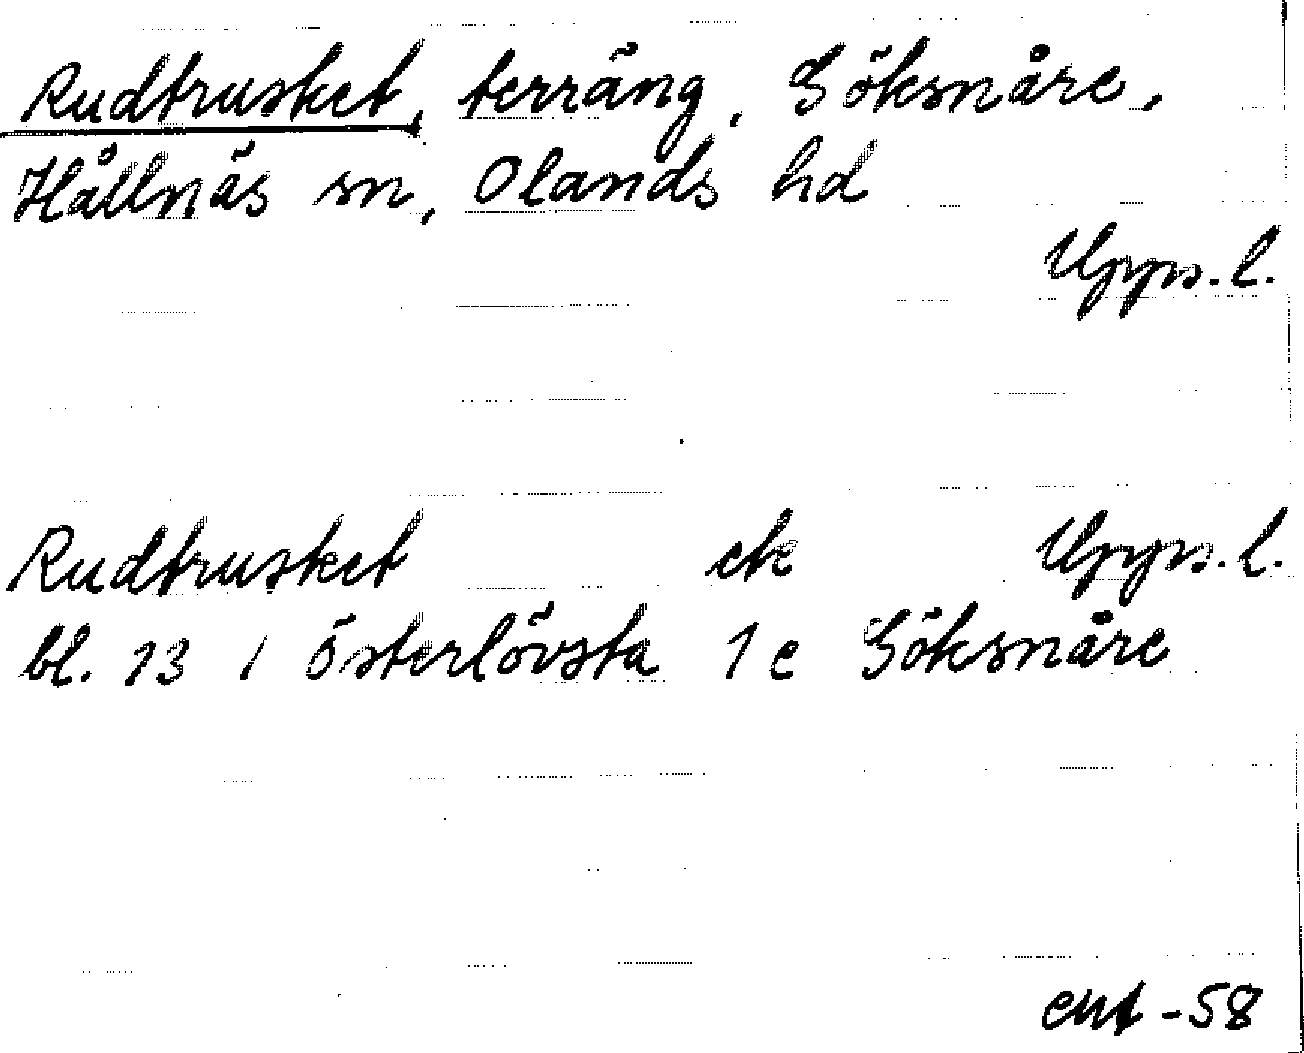 Rudtrusket, terräng, Göksnåre,
Hållnäs sn, Olands hd
Upps. l.
Rudtrusket ek Upps. l.
bl. 13 i Österlövsta 1 e Göksnåre
-58